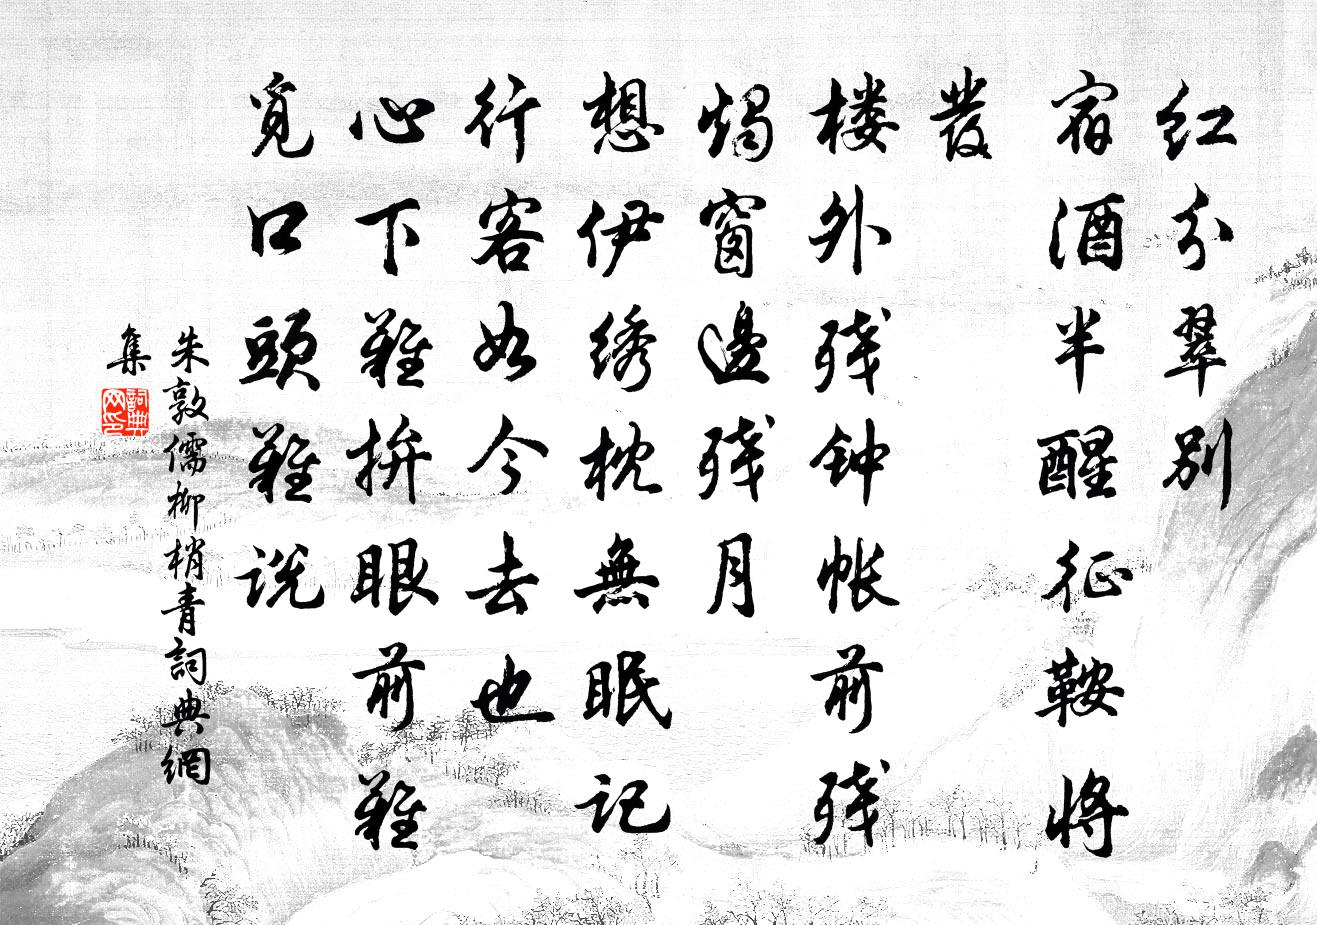 红分翠别
宿酒半醒征鞍将
發
楼外残钟帐前残
燭窗邊残月
想伊绣枕無眠记
行客如今去也
心下難拚眼前難
覓口頭難说
朱敦儒柳梢青詞典網
集
詞典网印